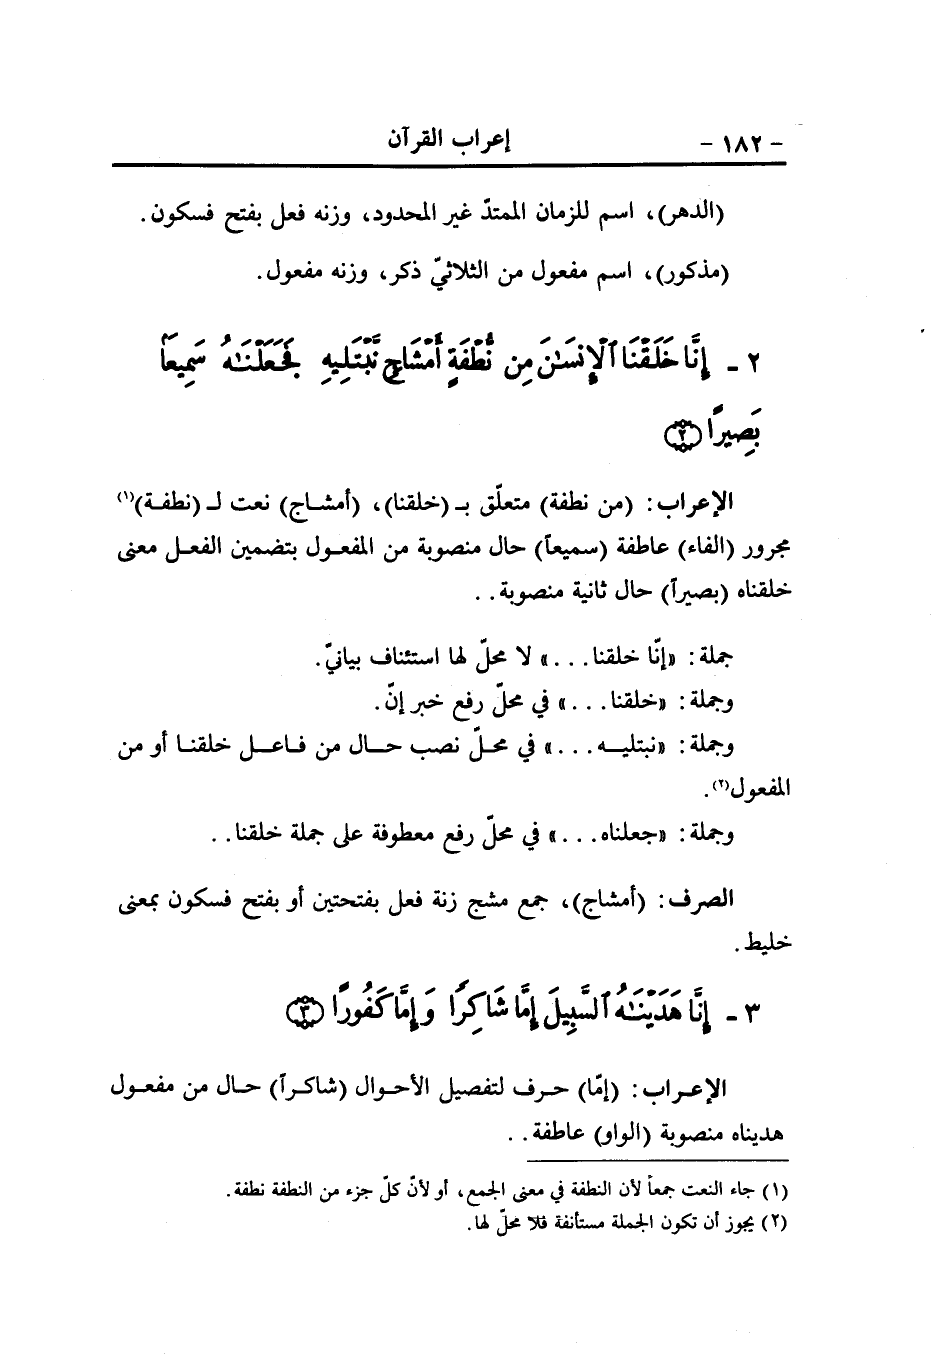 - ١٨٢ - إعراب القرآن
(الدهر)، اسم للزمان الممتدّ غير المحدود، وزنه فعل بفتح فسكون.
(مذكور)، اسم مفعول من الثلاثيّ ذكر، وزنه مفعول.
٢ - إِنَّا خَلَقْنَا ٱلْإِنسَـٰنَ مِن نُّطْفَةٍ أَمْشَاجٍ نَّبْتَلِيهِ فَجَعَلْنَـٰهُ سَمِيعًۢا
بَصِيرًا ﴿٢﴾
الإعراب: (من نطفة) متعلّق بـ (خلقنا)، (أمشاج) نعت لـ (نطفة)(١)
مجرور (الفاء) عاطفة (سميعاً) حال منصوبة من المفعول بتضمين الفعل معنى
خلقناه (بصيراً) حال ثانية منصوبة..
جملة: «إنّا خلقنا...» لا محلّ لها استئناف بيانيّ.
وجملة: «خلقنا...» في محلّ رفع خبر إنّ.
وجملة: «نبتليه...» في محلّ نصب حال من فاعل خلقنا أو من
المفعول(٢).
وجملة: «جعلناه...» في محلّ رفع معطوفة على جملة خلقنا..
الصرف: (أمشاج)، جمع مشج زنة فعل بفتحتين أو بفتح فسكون بمعنى
خليط.
٣ - إِنَّا هَدَيْنَـٰهُ ٱلسَّبِيلَ إِمَّا شَاكِرًا وَإِمَّا كَفُورًا ﴿٣﴾
الإعراب: (إمّا) حرف لتفصيل الأحوال (شاكراً) حال من مفعول
هديناه منصوبة (الواو) عاطفة..
(١) جاء النعت جمعاً لأن النطفة في معنى الجمع، أو لأنّ كلّ جزء من النطفة نطفة.
(٢) يجوز أن تكون الجملة مستأنفة فلا محلّ لها.